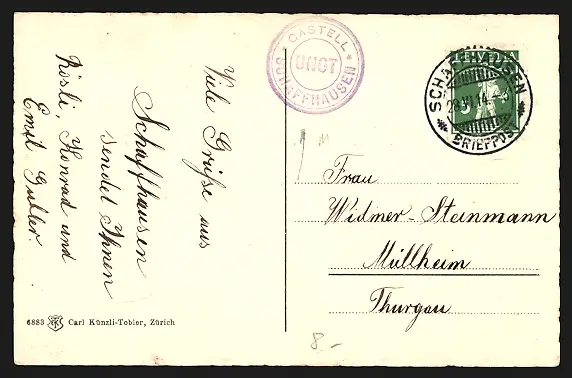 Viele Grüße aus
Schaffhausen
sendet Ihnen
Rösli, Konrad und
Emil Guller.
CASTELL
UNOT
SCHAFFHAUSEN
HELVETIA
5
SCHAFFHAUSEN
28.VI.14.
BRIEFPOST
Frau
Widmer-Steinmann
Müllheim
Thurgau
6883 Carl Künzli-Tobler, Zürich
8.-